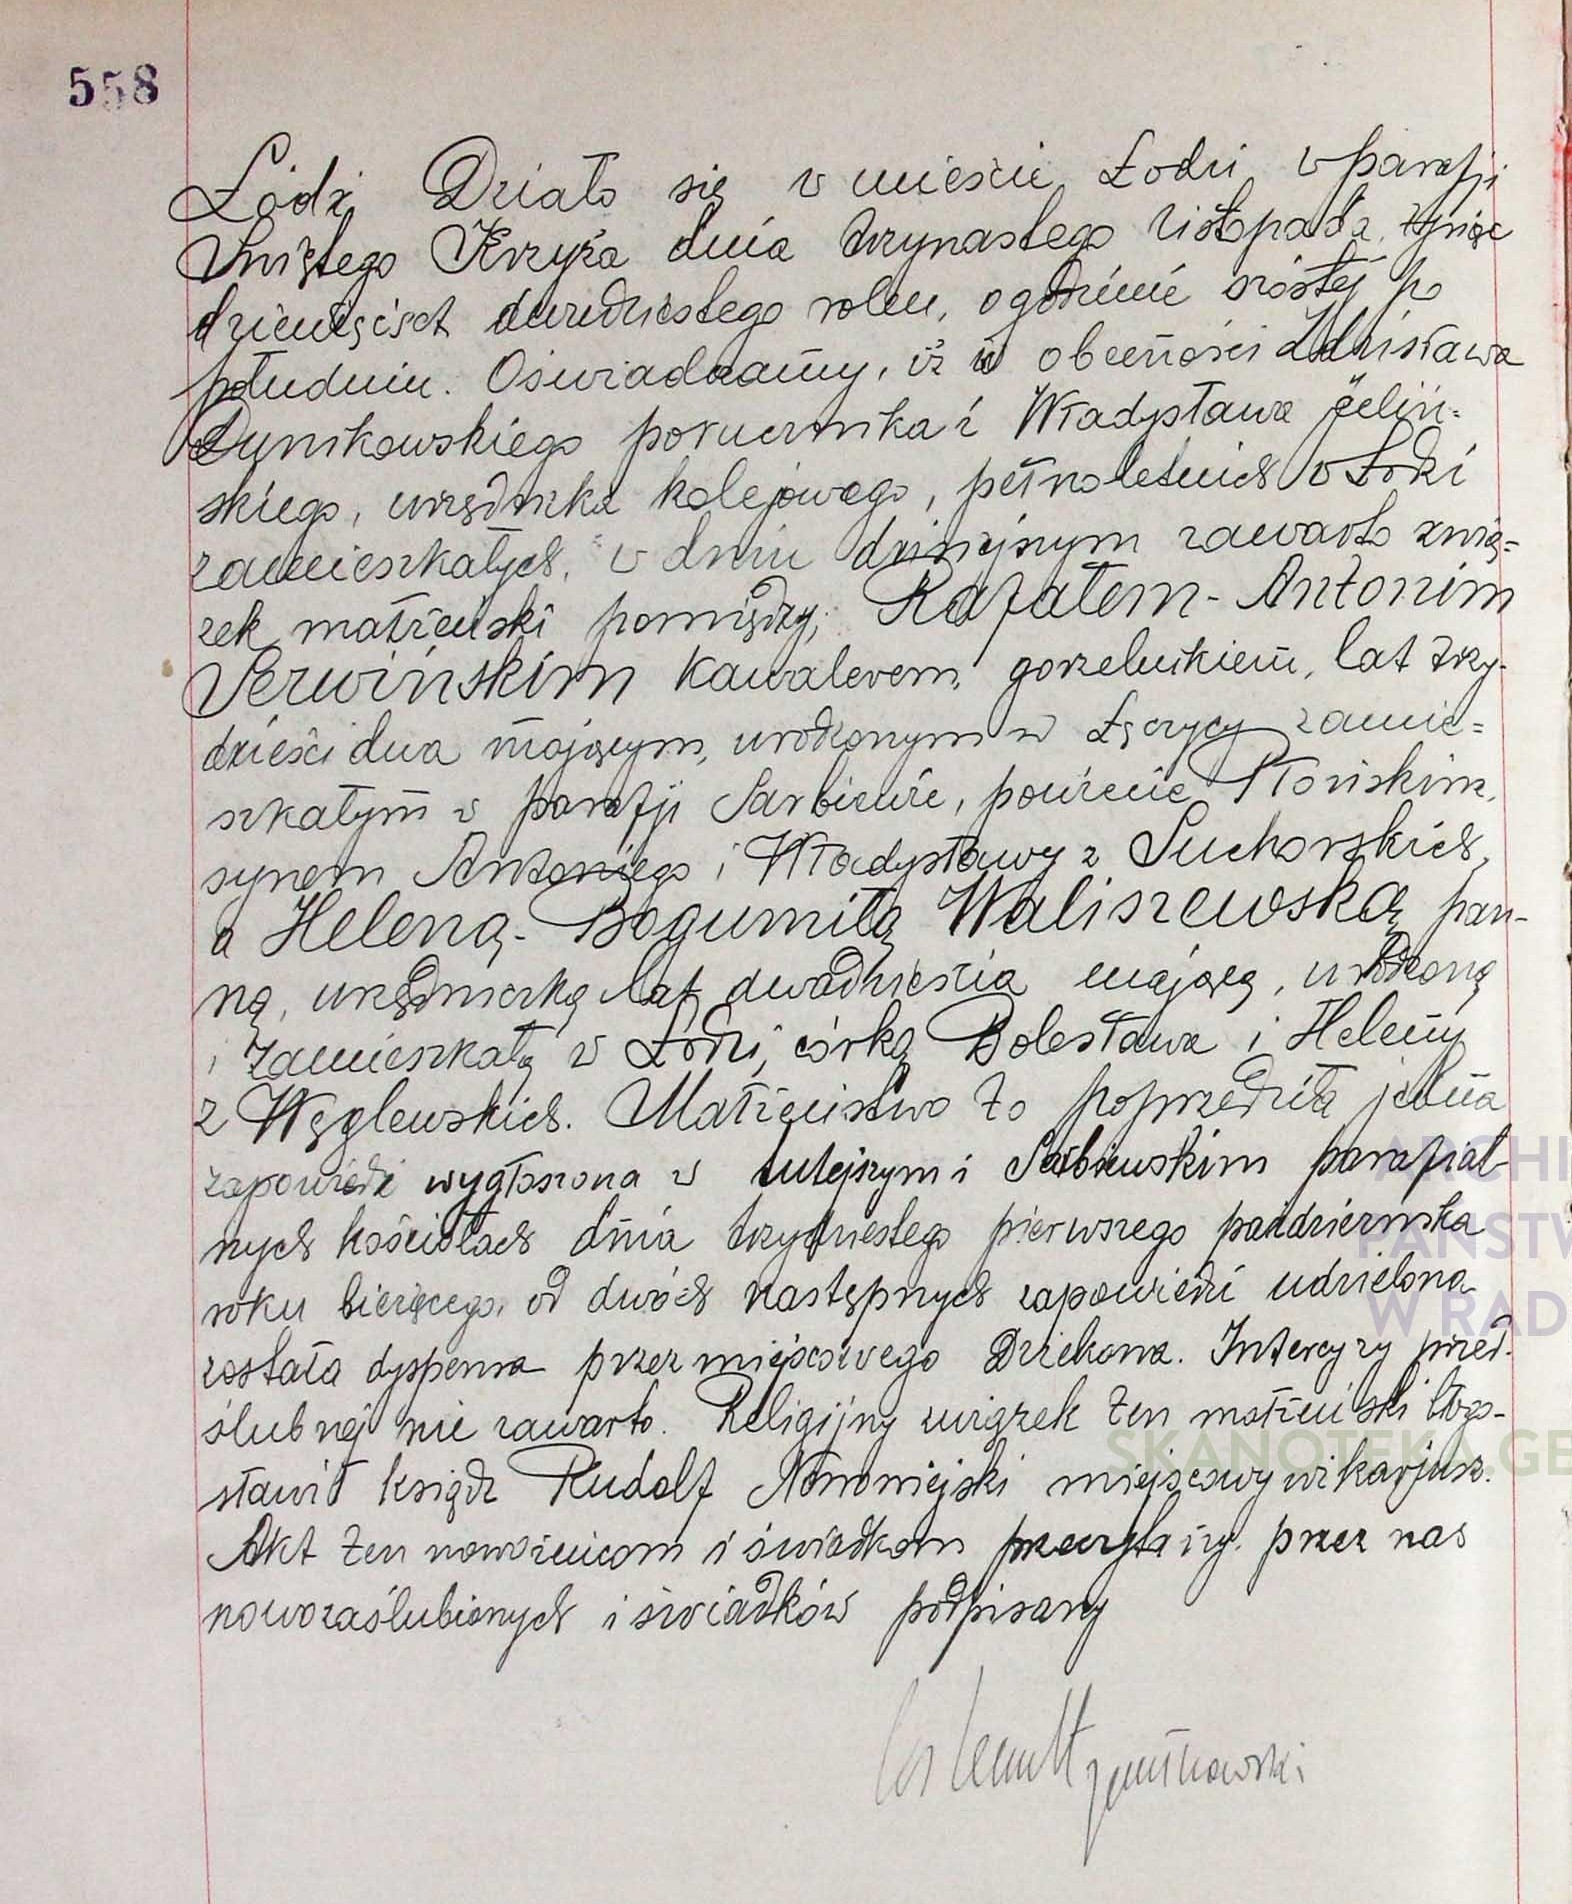 558
Łódź. Działo się w mieście Łodzi w parafji
Świętego Krzyża dnia trzynastego listopada, tysiąc
dziewięćset dwudziestego roku, o godzinie szóstej po
południu. Oświadczamy, iż w obecności Zdzisława
Dunikowskiego porucznika i Władysława Jeliń=
skiego, urzędnika kolejowego, pełnoletnich w Łodzi
zamieszkałych, w dniu dzisiejszym zawarto zwią=
zek małżeński pomiędzy, Rafałem-Antonim
Serwińskim kawalerem, gorzelnikiem, lat trzy-
dzieści dwa mającym, urodzonym w Łęczycy zamie=
szkałym w parafji Sarbiewie, powiecie Płońskim,
synem Antoniego i Władysławy z Suchorskich,
a Heleną-Bogumiłą Waliszewską pan-
ną, urzędniczką lat dwadzieścia mającą, urodzoną
i zamieszkałą w Łodzi, córką Bolesława i Heleny
z Węglewskich. Małżeństwo to poprzedziła jedna
zapowiedź wygłoszona w tutejszym i Sarbiewskim parafial-
nych kościołach dnia trzydziestego pierwszego października
roku bieżącego, od dwóch następnych zapowiedzi udzielona
została dyspensa przez miejscowego Dziekana. Intercyzy przed-
ślubnej nie zawarto. Religijny związek ten małżeński błogo-
sławił ksiądz Rudolf Nowowiejski miejscowy wikarjusz.
Akt ten nowożeńcom i świadkom przeczytany, przez nas
nowozaślubionych i świadków podpisany
ARCHI
PAŃSTW
W RAD
SKANOTEKA.GE